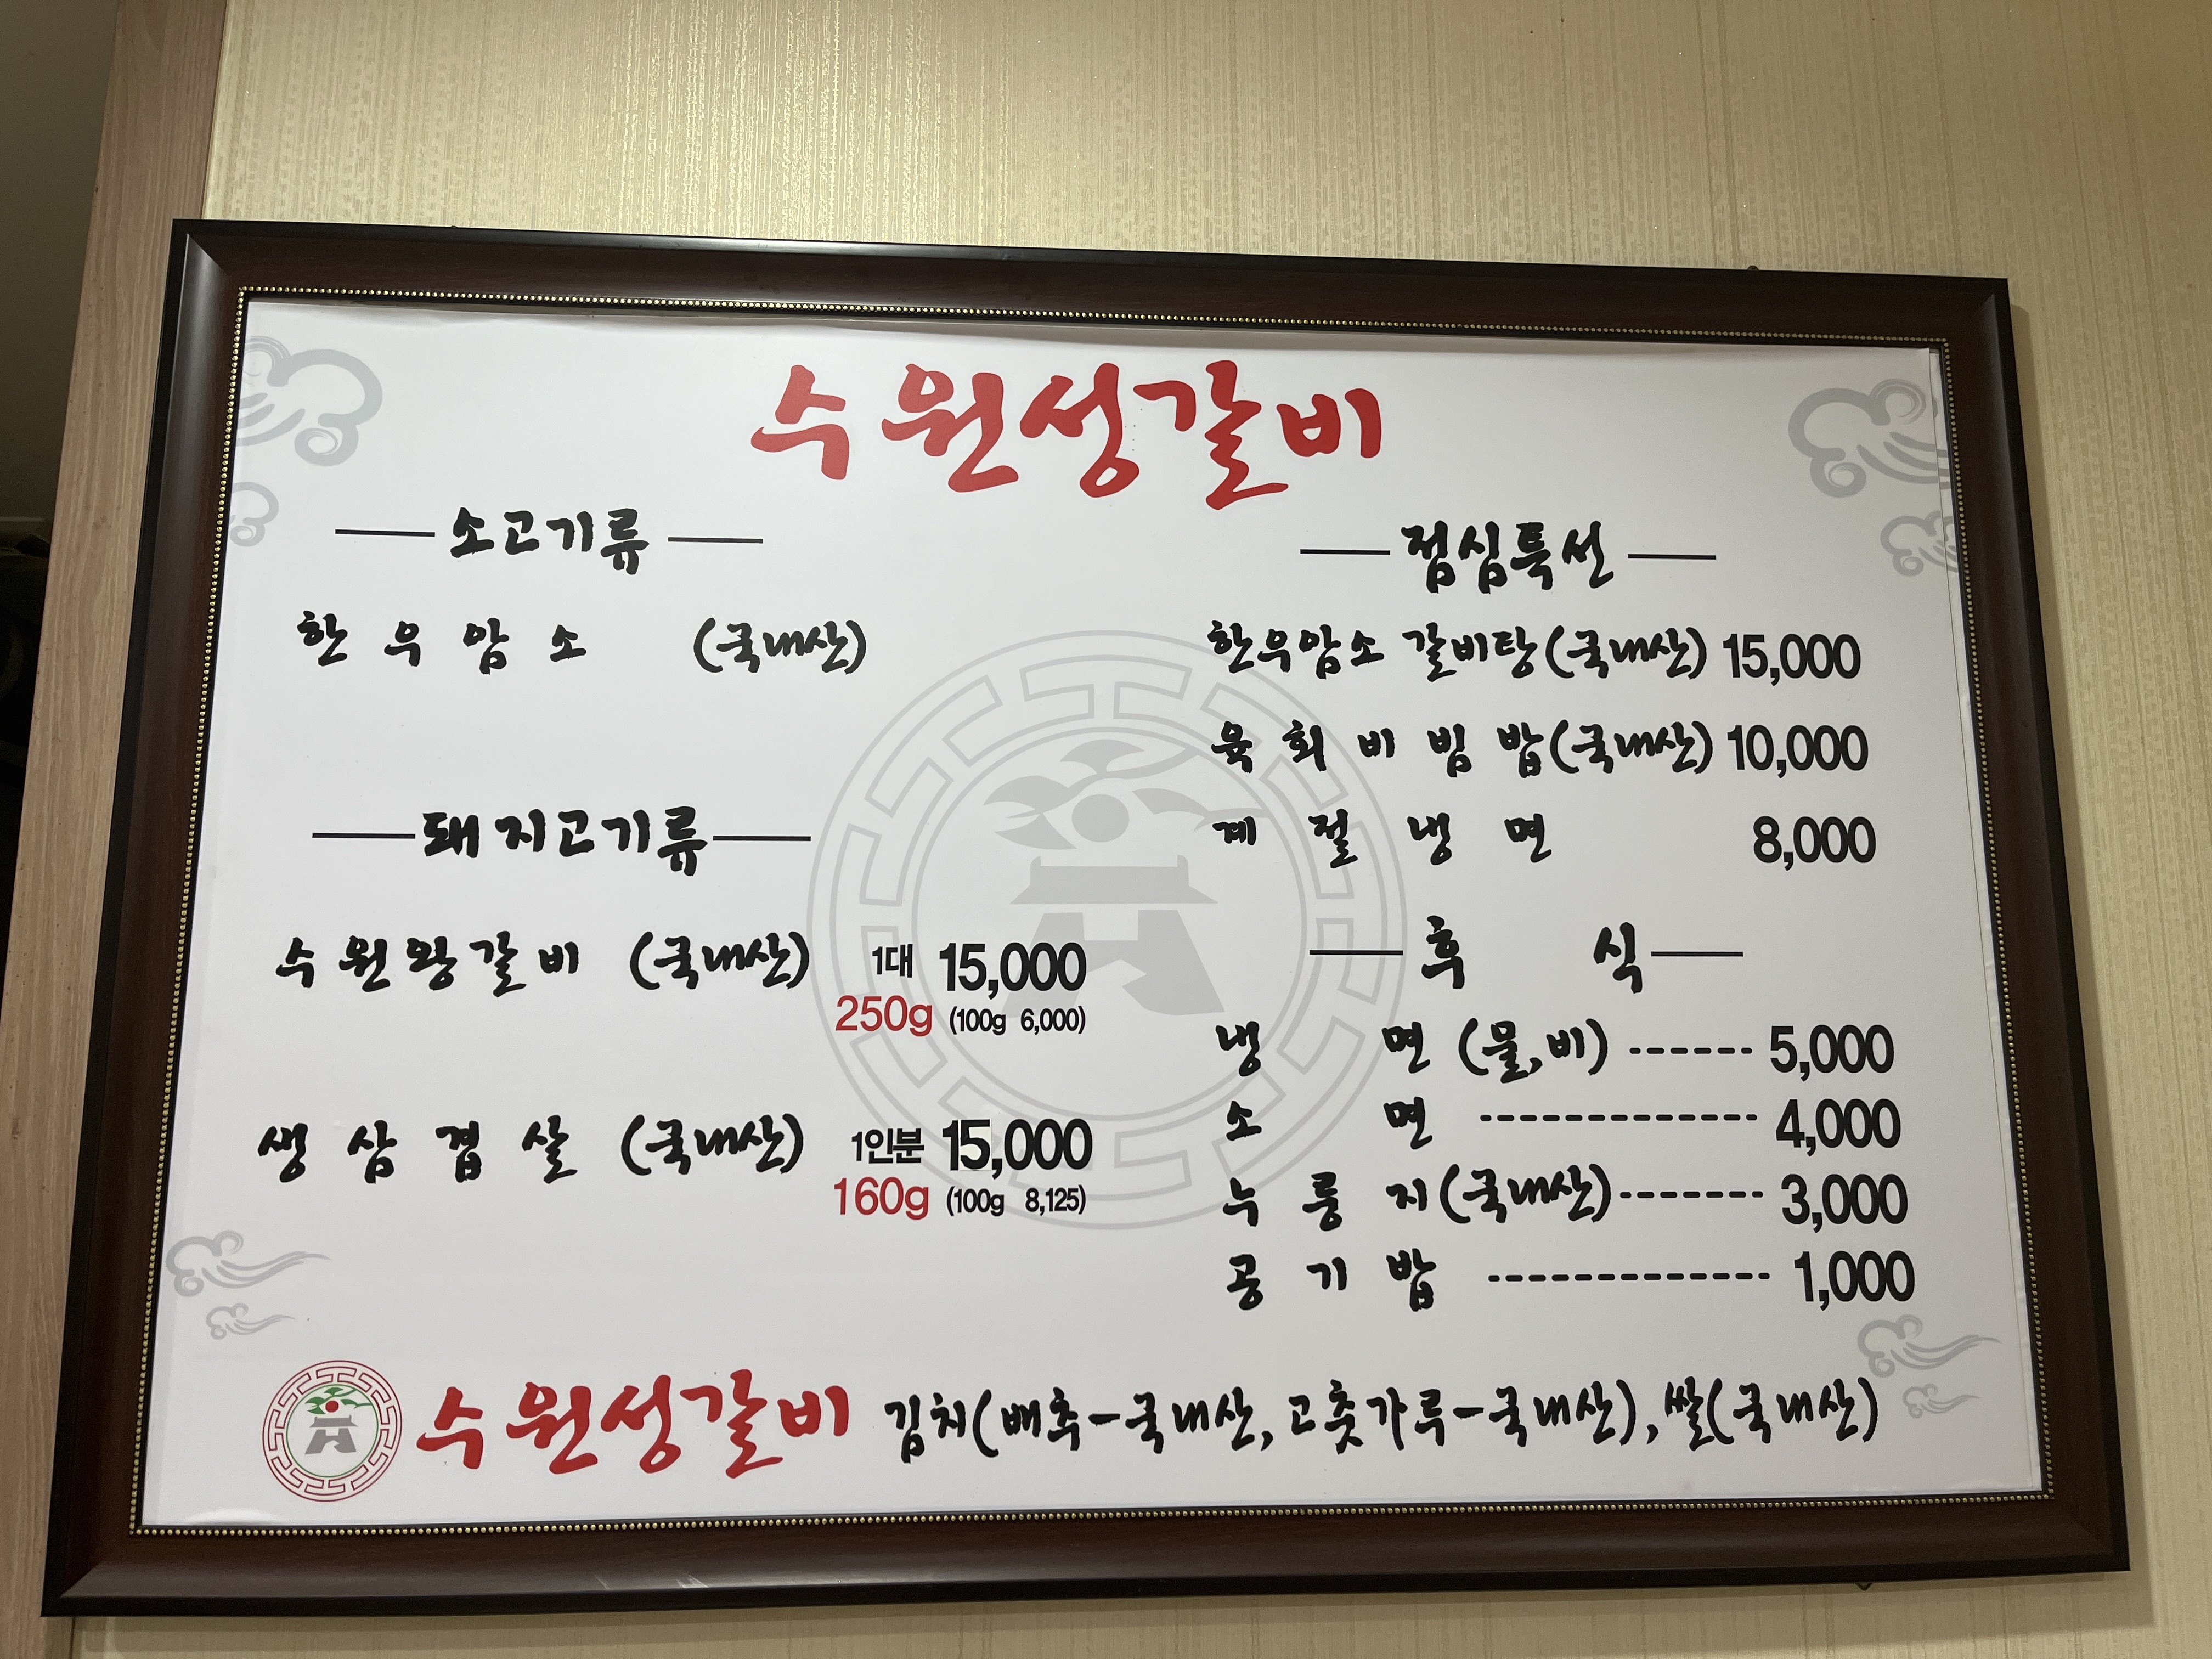 수원성갈비
소고기류
한우암소 (국내산)
돼지고기류
수원왕갈비 (국내산) 1대 15,000
250g (100g 6,000)
생삼겹살 (국내산) 1인분 15,000
160g (100g 8,125)
점심특선
한우암소 갈비탕(국내산) 15,000
육회비빔밥(국내산) 10,000
계절냉면 8,000
후식
냉면 (물,비) ------ 5,000
소면 ------------- 4,000
누룽지(국내산)------- 3,000
공기밥 ------------- 1,000
수원성갈비 김치(배추-국내산, 고춧가루-국내산), 쌀(국내산)